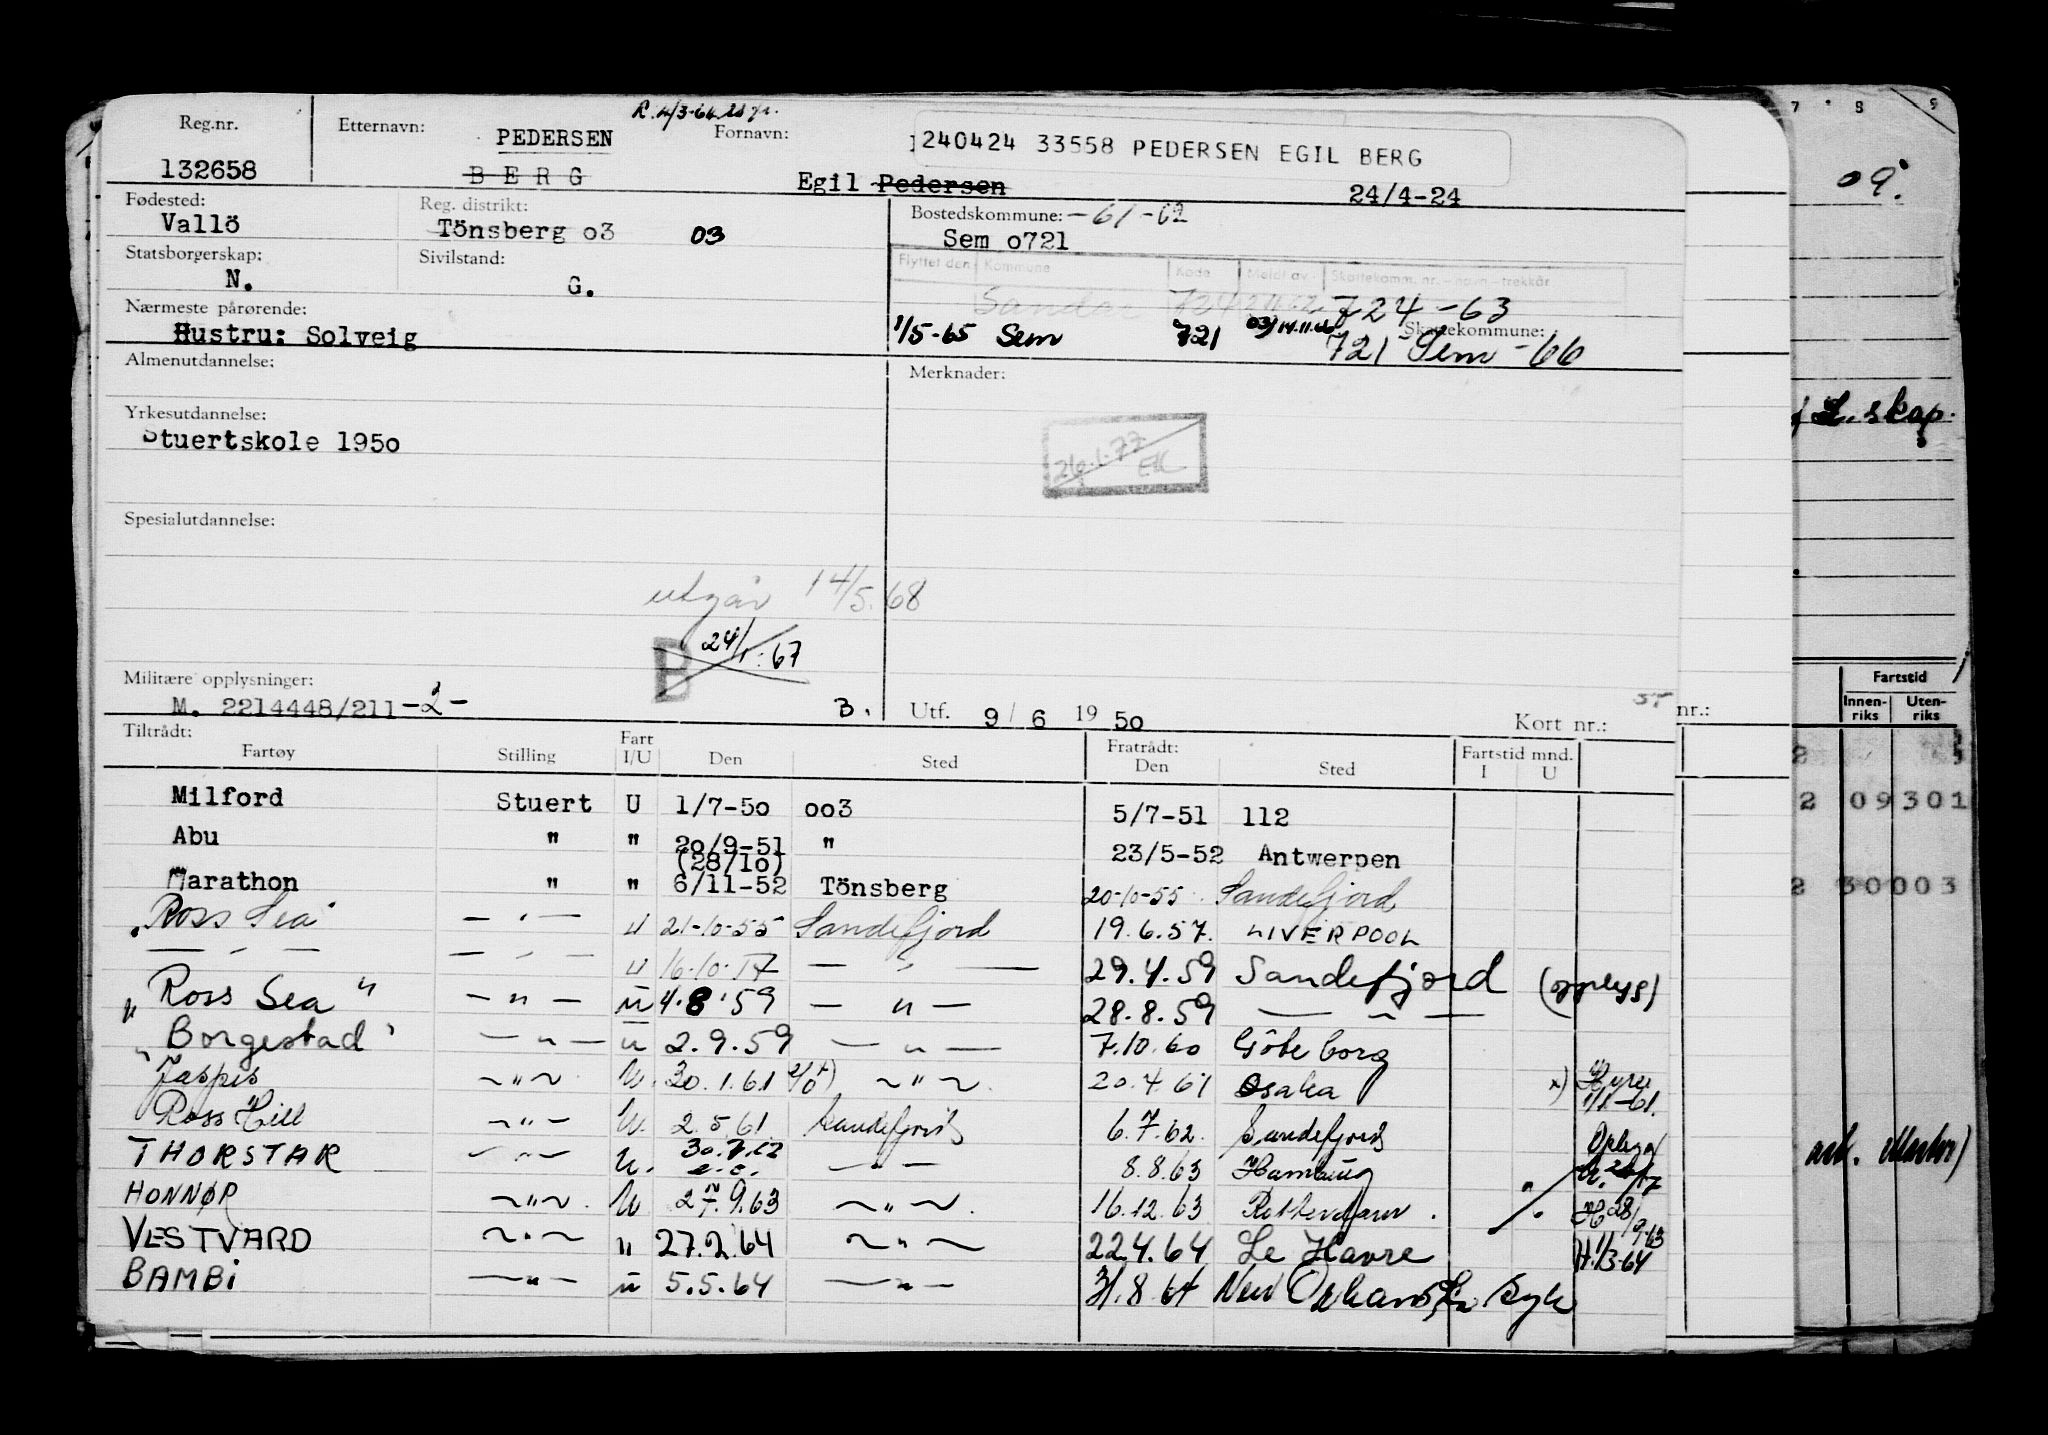 R. 4/3-64
Reg.nr. Etternavn: PEDERSEN Fornavn: 240424 33558 PEDERSEN EGIL BERG
132658 BERG Egil Pedersen 24/4-24
Fødested: Reg. distrikt: Bostedskommune: -61-62
Vallö Tönsberg o3 03 Sem o721
Statsborgerskap: Sivilstand: Flyttet den Kommune Kode Meldt av Skattekomm. nr. - navn - trekkår
N. G. Sandar 724 724-63
Nærmeste pårørende: Skattekommune:
Hustru: Solveig 1/5-65 Sem 721 03/14.11.66 721 Sem -66
Almenutdannelse: Merknader:
Yrkesutdannelse:
Stuertskole 195o 26.1.77 EK
Spesialutdannelse:
utgår 14/5.68
B 24/1-67
Militære opplysninger:
M. 2214448/211-2- 3. Utf. 9/6 19 5o Kort nr.: nr.:
Tiltrådt: Fartøy Stilling Fart I/U Den Sted Fratrådt: Den Sted Fartstid mnd. I U
Milford Stuert U 1/7-5o oo3 5/7-51 112
Abu " " 2o/9-51 " 23/5-52 Antwerpen
(28/1o)
Marathon " " 6/11-52 Tönsberg 20-10-55 Sandefjord
"Ross Sea" — " — U 21-10-55 Sandefjord 19.6.57. LIVERPOOL
— " — — " — U 16.10.57 — " — 29.4.59 Sandefjord (opplyg)
"Ross Sea" — " — U 4.8.59 — " — 28.8.59 — " —
"Borgestad" — " — U 2.9.59 — " — 7.10.60 Göteborg
Jaspis ~ " ~ U. 30.1.61 x) ~ " ~ 20.4.61 Osaka x) Hyre 1/1-61.
Ross Hill ~ " ~ U. 2.5.61 Sandefjord 6.7.62. Sandefjord
THORSTAR ~ " ~ U. 30.7.62 — " — 8.8.63 Hamburg
HONNØR ~ " ~ U 27.9.63 ~ " ~ 16.12.63 Rotterdam. H 28/9-63
VESTVARD ~ " ~ " 27.2.64 ~ " ~ 22.4.64 Le Havre H.1/3-64
BAMBi — " — U 5.5.64 — " — 31.8.64 New Orleans, La syk
7 8 9
09.
skap.
Fartstid
Innen-riks Uten-riks
2 09301
2 30003